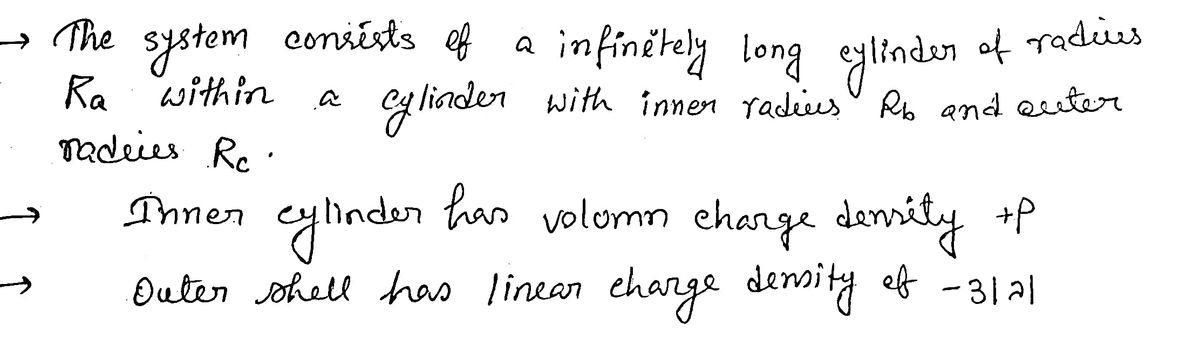 → The system consists of a infinitely long cylinder of radius
Ra within a cylinder with inner radius Rb and outer
radius Rc.
→ Inner cylinder has volomn charge density +ρ
→ Outer shell has linear charge density of -3|λ|